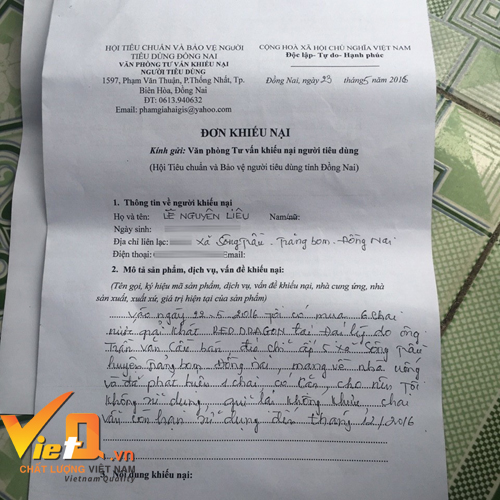 HỘI TIÊU CHUẨN VÀ BẢO VỆ NGƯỜI
TIÊU DÙNG ĐỒNG NAI
VĂN PHÒNG TƯ VẤN KHIẾU NẠI
NGƯỜI TIÊU DÙNG
1597, Phạm Văn Thuận, P.Thống Nhất, Tp.
Biên Hòa, Đồng Nai
ĐT: 0613.940632
Email: phamgiahaigis@yahoo.com
CỘNG HOÀ XÃ HỘI CHỦ NGHĨA VIỆT NAM
Độc lập- Tự do- Hạnh phúc
Đồng Nai, ngày 23 tháng 5 năm 2016
ĐƠN KHIẾU NẠI
Kính gửi: Văn phòng Tư vấn khiếu nại người tiêu dùng
(Hội Tiêu chuẩn và Bảo vệ người tiêu dùng tỉnh Đồng Nai)
1. Thông tin về người khiếu nại
Họ và tên: LÊ NGUYÊN LIÊU Nam/nữ:
Ngày sinh:
Địa chỉ liên lạc: Xã Sông Trầu - Trảng bom - Đồng Nai
Điện thoại: Email:
2. Mô tả sản phẩm, dịch vụ, vấn đề khiếu nại:
(Tên gọi, ký hiệu mã sản phẩm, dịch vụ, vấn đề khiếu nại, nhà cung ứng, nhà
sản xuất, xuất xứ, giá trị hiện tại của sản phẩm)
Vào ngày 22.5.2016 tôi có mua 6 chai
nước giải khát RED DRAGON tại Đại lý do ông
Trần Văn Cần bán địa chỉ ấp 5 xã Sông Trầu
huyện Trảng bom Đồng Nai, mang về nhà uống
và đã phát hiện 1 chai có cặn, cho nên tôi
không sử dụng, khiếu, chai
vẫn còn hạn sử dụng đến tháng 12/2016
3. Nội dung khiếu nại:
VietQ.vn
CHẤT LƯỢNG VIỆT NAM
Vietnam Quality